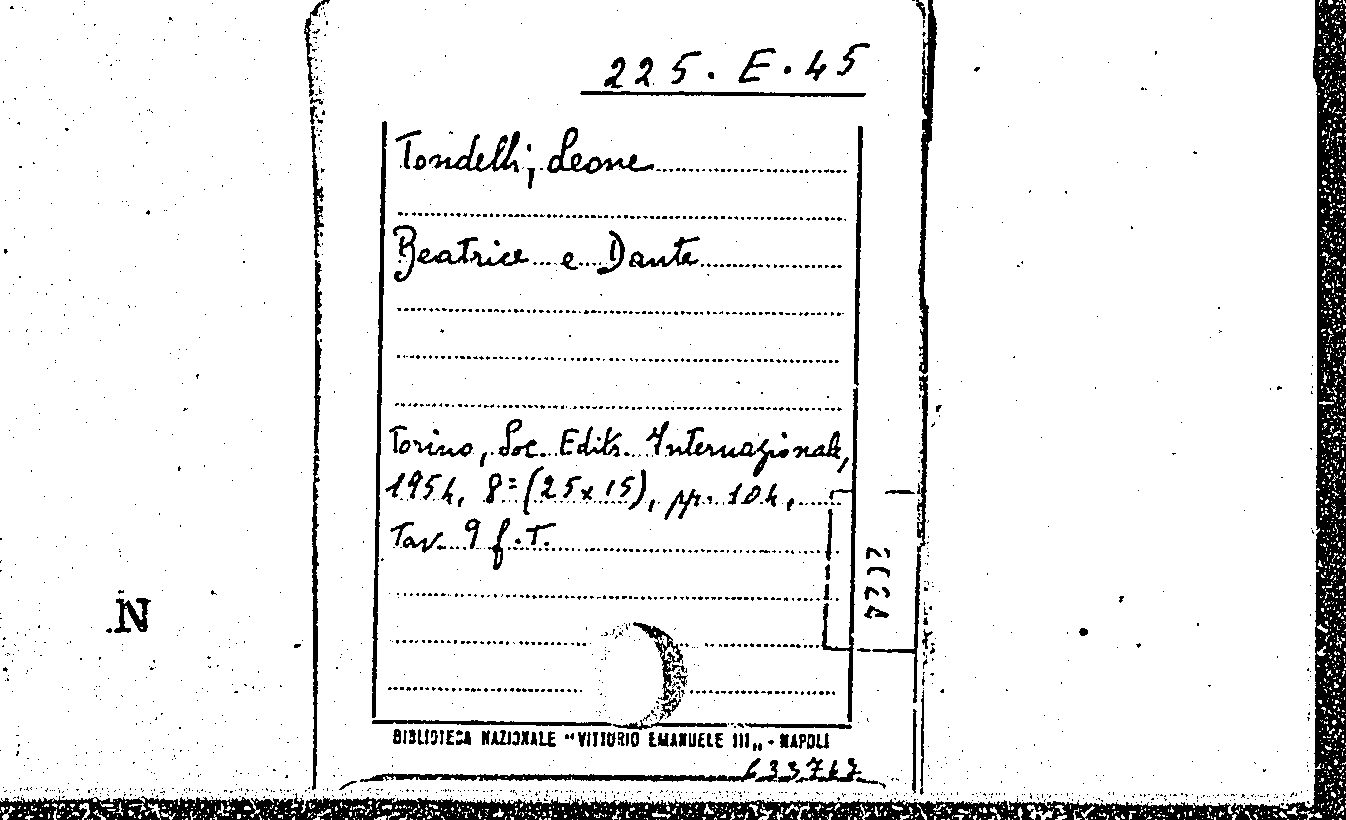 225. E. 45
Tondelli, Leone
Beatrice e Dante
Torino, Soc. Editr. Internazionale,
1954, 8º (25x15), pp. 104,
Tav. 9 f. T.
N
BIBLIOTECA NAZIONALE "VITTORIO EMANUELE III„ - NAPOLI